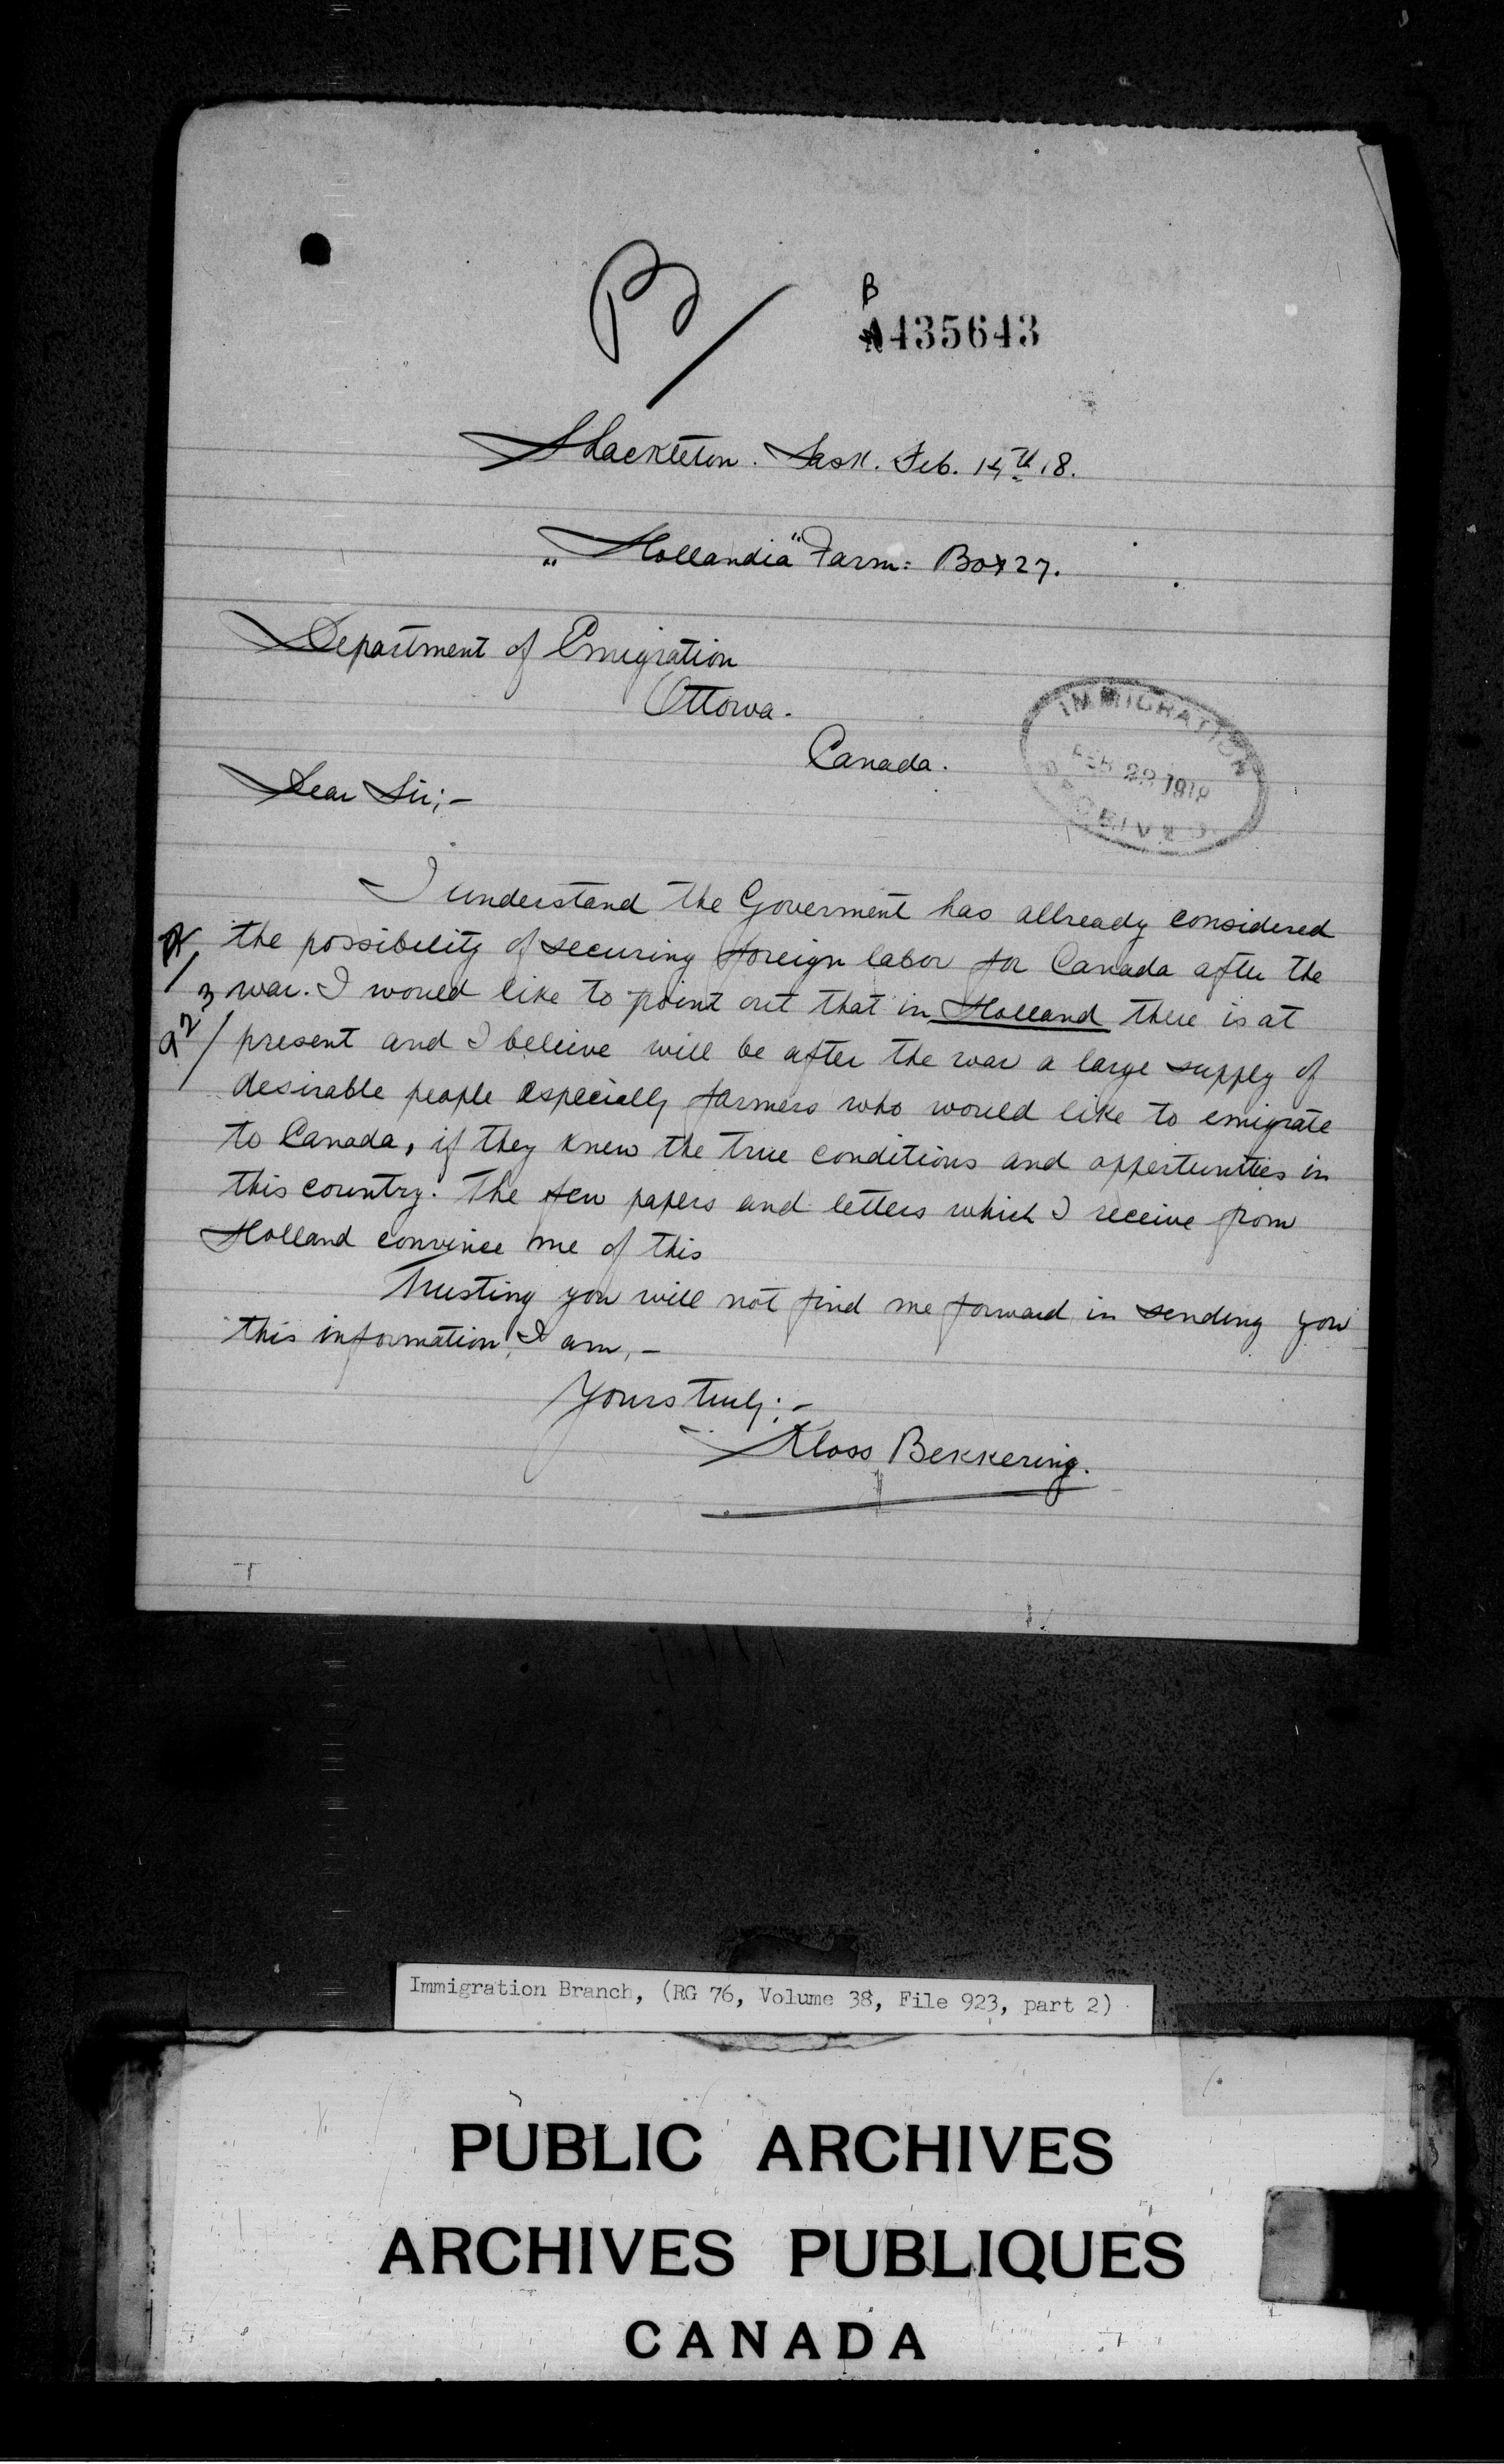 B
B
A435643
Shackleton. Sask. Feb. 14th 18.
„Hollandia" Farm: Box 27.
Department of Emigration
Ottowa.
Canada.
IMMIGRATION
FEB 22 1918
RECEIVED
Dear Sir;-
I understand the Goverment has allready considered
the possibility of securing foreign labor for Canada after the
war. I would like to point out that in Holland there is at
923
present and I believe will be after the war a large supply of
desirable people especially farmers who would like to emigrate
to Canada, if they knew the true conditions and oppertunities in
this country. The few papers and letters which I receive from
Holland convince me of this
Trusting you will not find me forward in sending you
this information, I am,-
Yours truly:-
Klaas Bekkering.
Immigration Branch, (RG 76, Volume 38, File 923, part 2)
PUBLIC ARCHIVES
ARCHIVES PUBLIQUES
CANADA